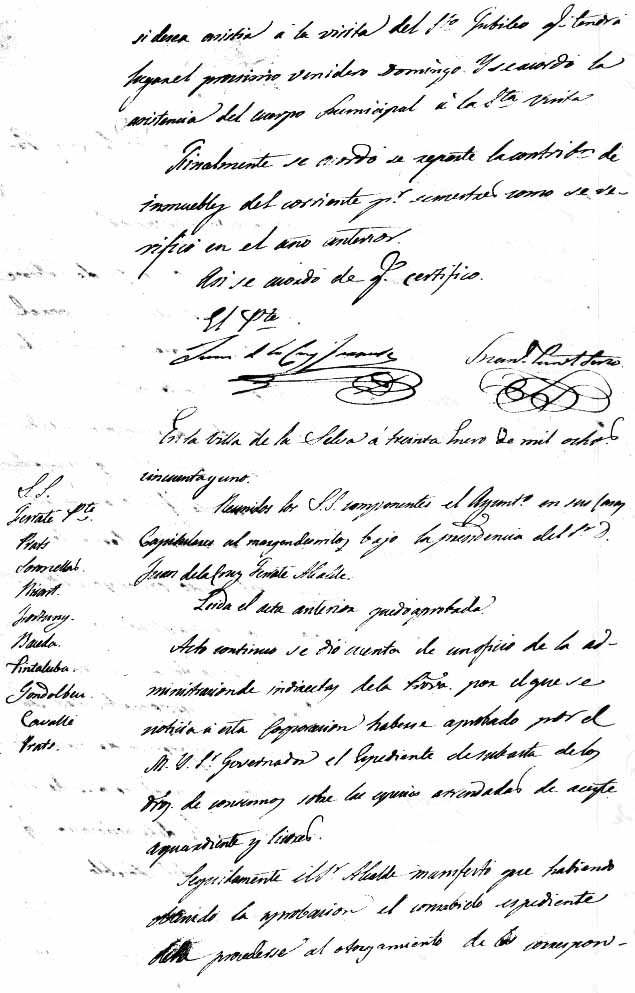 si desea asistir à la visita del Sto Jubileo qe. tendrá
lugar el procsimo venidero Domingo. Y se acordó la
asistencia del cuerpo Municipal à la Sta visita
Finalmente se acordó se reparta la contribn. de
inmuebles del corriente pr. semestres como se ve-
rificó en el año anterior.
Asi se acordó de qe. certifico.
El Pte
Juan de la Cruz
En la Villa de la Selva á treinta Enero de mil ochos
cincuenta y uno.
Reunidos los S.S. componentes el Ayuntº. en sus Casas
Capitulares al margen descritos bajo la presidencia del Sr. D.
Juan de la Cruz Ferraté Alcalde.
Leida el acta anterior quedo aprobada
Acto continuo se dió cuenta de un oficio de la ad-
ministracion de indirectas de la Provª. por el que se
noticia à esta Corporacion haberse aprobado por el
M. Y. Sr. Governador el Expediente de subasta de los
dros. de consumos sobre las especies arrendadas de aceyte
aguardiente y licores.
Seguidamente el Sr. Alcalde manifestó que habiendo
obtenido la aprobacion el consabido espediente
procederse al otorgamiento de las correspon-
S.S.
Ferraté Pte
Prats
Nicart.
Fortuny.
Baseda.
Pintaluba.
Gondolbeu
Cavallé
Prats.